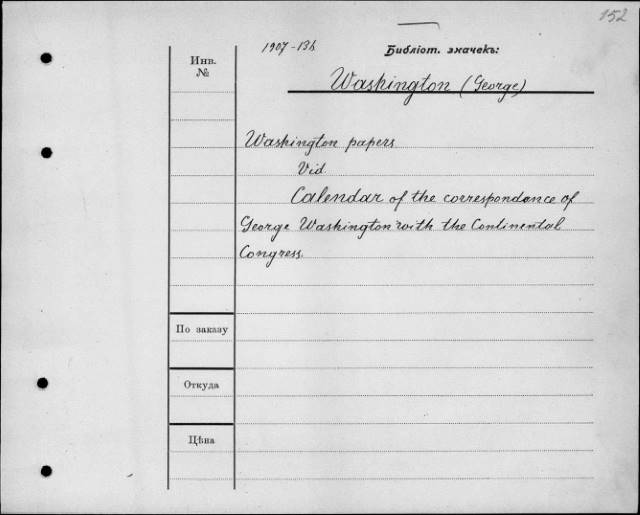 152
1907-136
Библіот. значекъ:
Инв.
№
Washington (George)
Washington papers
Vid.
Calendar of the correspondance of
George Washington with the Continental
Congress.
По заказу
Откуда
Цѣна